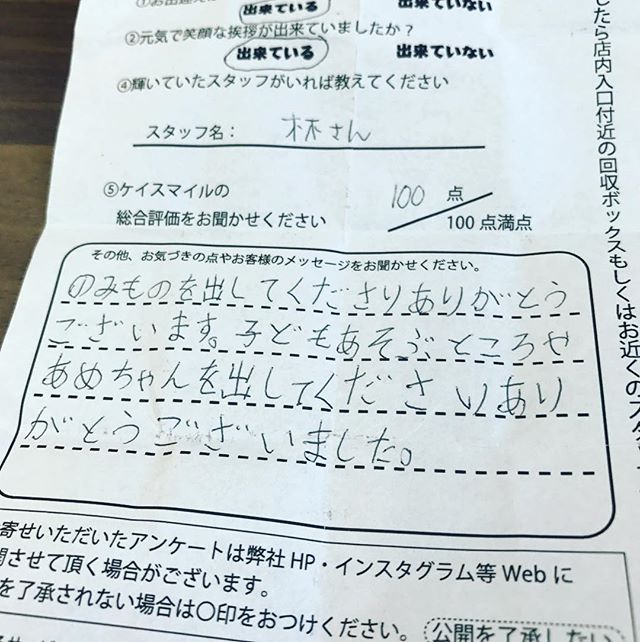 出来ている 出来ていない
②元気で笑顔な挨拶が出来ていましたか?
出来ている 出来ていない
④輝いていたスタッフがいれば教えてください
スタッフ名: 林さん
⑤ケイスマイルの
総合評価をお聞かせください
100 点
100点満点
その他、お気づきの点やお客様のメッセージをお聞かせください。
のみものを出してくださりありがとう
ございます。子どもあそぶところや
あめちゃんを出してくださりあり
がとうございました。
寄せいただいたアンケートは弊社HP・インスタグラム等Webに
させて頂く場合がございます。
を了承されない場合は〇印をおつけください。
公開を了承しない
したら店内入口付近の回収ボックスもしくはお近くのスタ